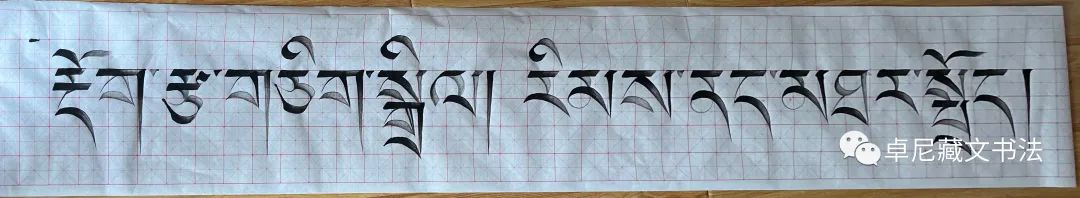 རྡོག་རྩ་གཅིག་སྒྲིལ། རིམས་ནད་མཐར་སྐྲོད།
卓尼藏文书法